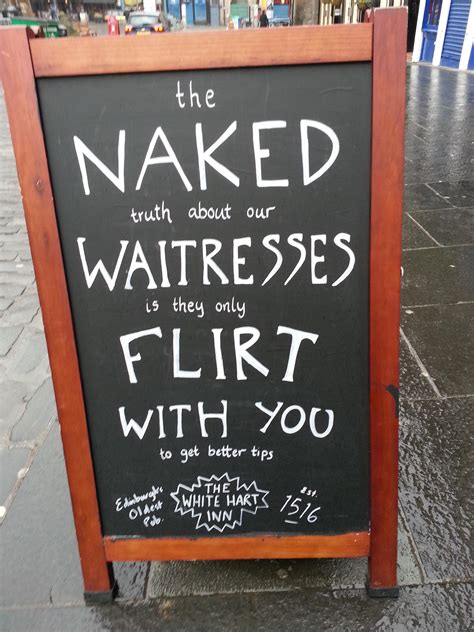 the
NAKED
truth about our
WAITRESSES
is they only
FLIRT
WITH YOU
to get better tips
Edinburgh's
Oldest
Pub.
THE
WHITE HART
INN
Est.
1516